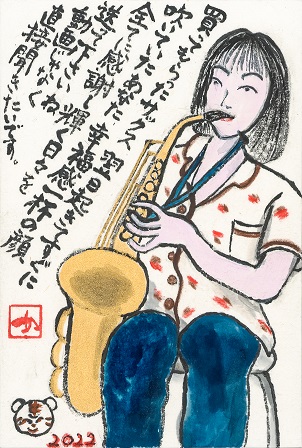 買てもらったサックス
翌日起きてすぐに
吹いていたあなた
幸福感一杯の顔
全てに感謝し
輝く日々を
送って下さいね
動画じゃなく
直接聞きたいです。
か
2022